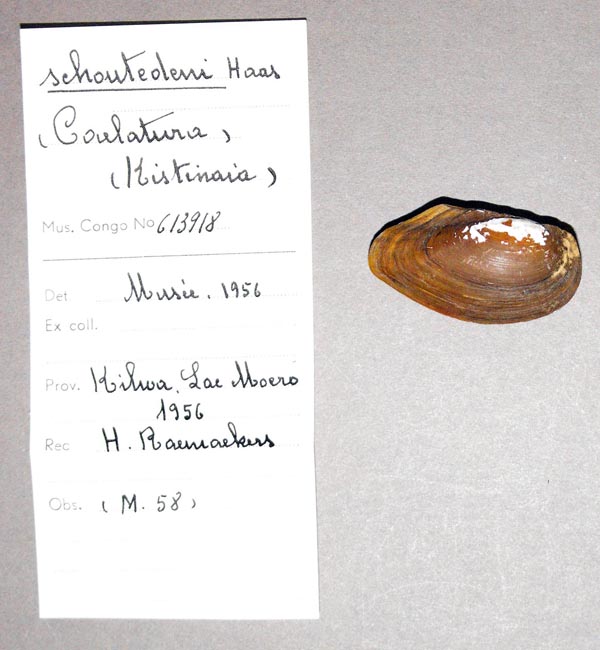 schoutedeni Haas
(Coelatura)
(Kistinaia)
Mus. Congo No 613918
Det Musée. 1956
Ex coll.
Prov. Kilwa. Lac Moero
1956
Rec H. Raemaekers
Obs. (M. 58)